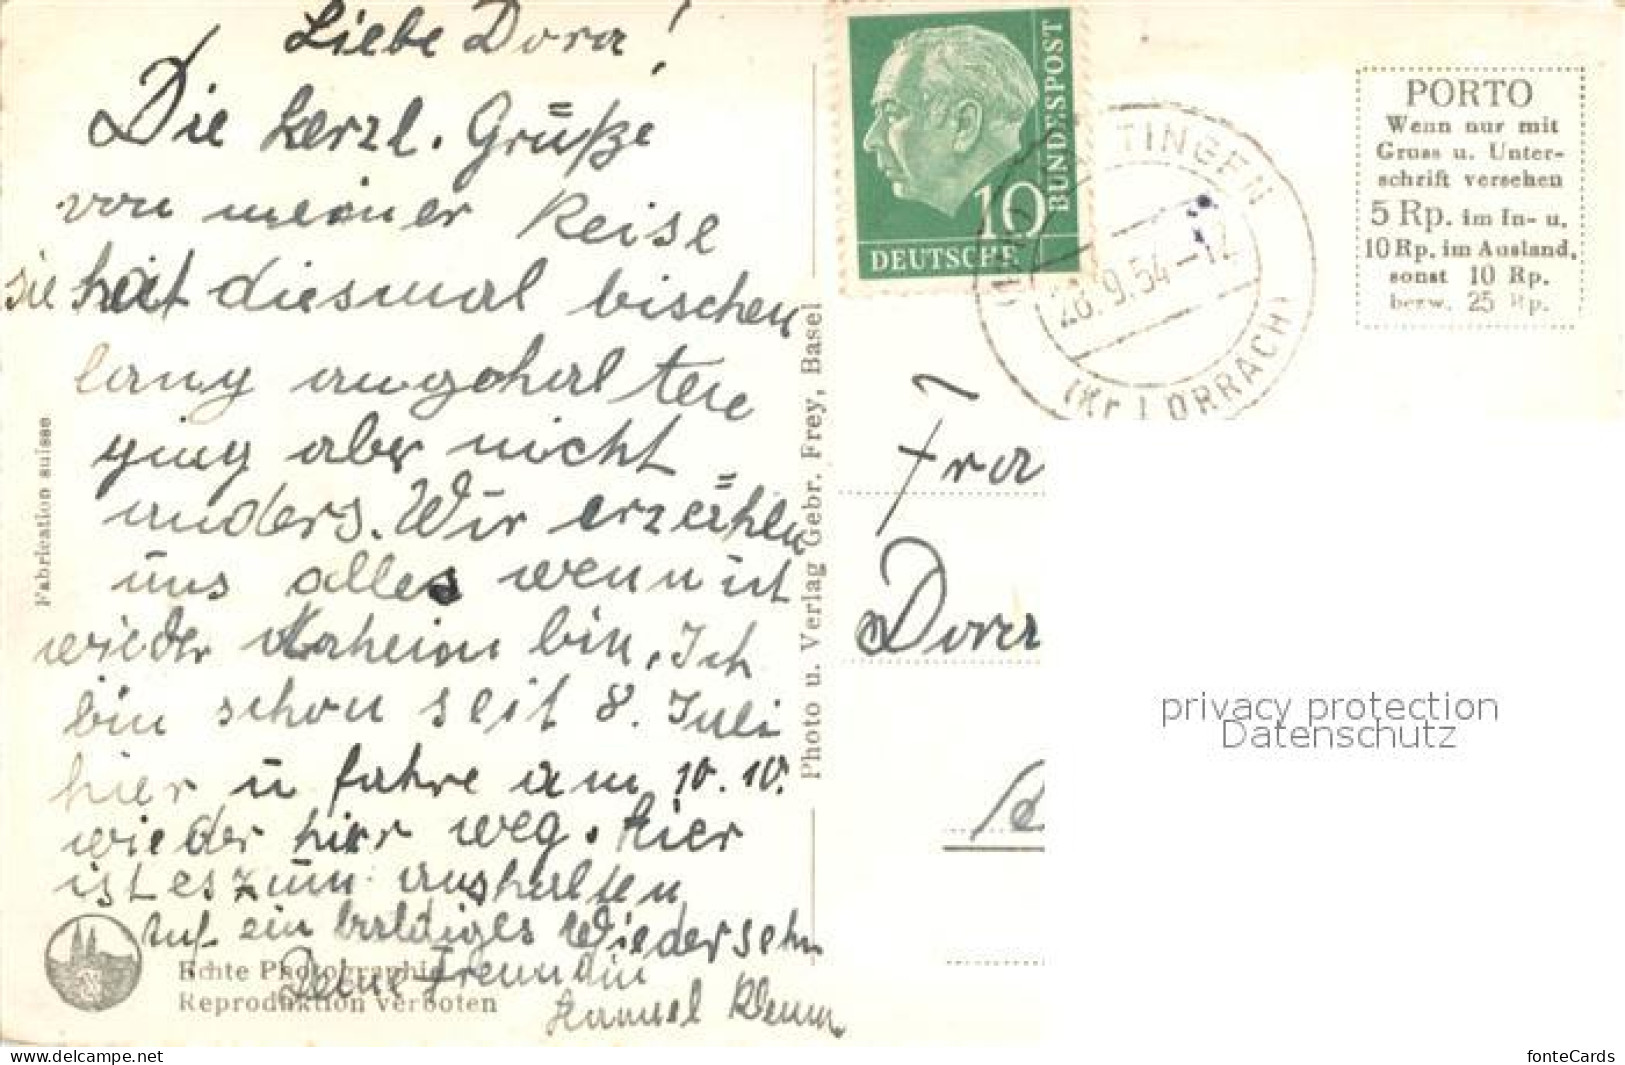 Liebe Dora!
Die herzl. Grüße
von meiner Reise
sie hat diesmal bischen
lang angehalten
ging aber nicht
anders. Wir erzählen
uns alles wenn ich
wieder daheim bin. Ich
bin schon seit 8. Juli
hier u fahre am 10.10.
wieder hier weg. Hier
ist es zum aushalten
Auf ein baldiges Wiedersehn
Deine Freundin
Fabrication suisse
Echte Photographie
Reproduktion verboten
Photo u. Verlag Gebr. Frey, Basel
10
DEUTSCHE
BUNDESPOST
TINGEN
28.9.54-12
(Kr LÖRRACH)
PORTO
Wenn nur mit
Gruss u. Unter-
schrift versehen
5 Rp. im In- u.
10 Rp. im Ausland,
sonst 10 Rp.
bezw. 25 Rp.
Fra
Dora
privacy protection
Datenschutz
www.delcampe.net
fonteCards